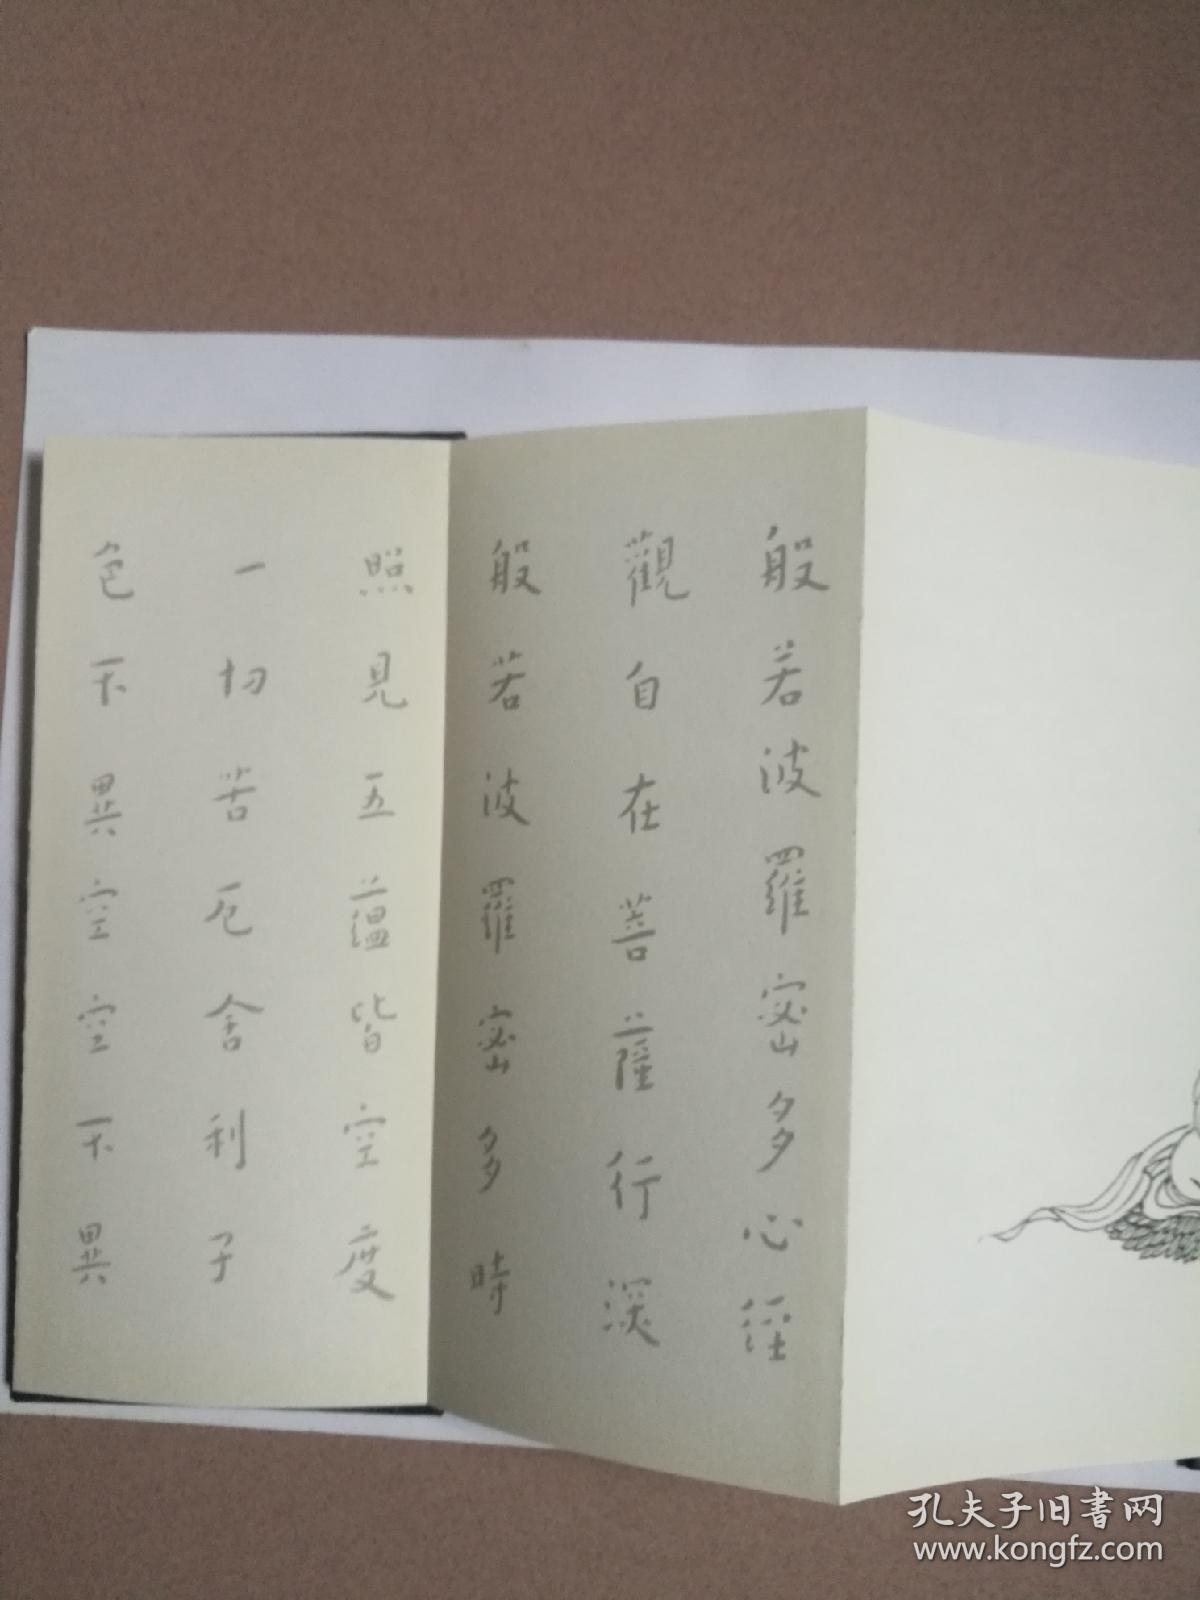 般若波羅蜜多心經
觀自在菩薩行深
般若波羅蜜多時
照見五蘊皆空度
一切苦厄舍利子
色不異空空不異
孔夫子旧书网
www.kongfz.com